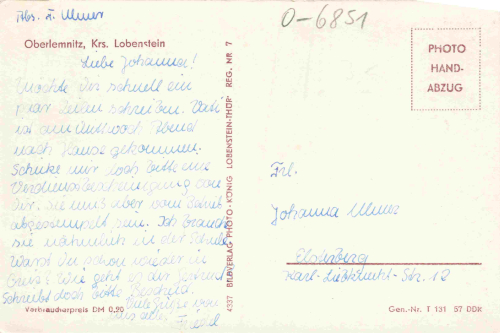 O-6851
Oberlemnitz, Krs. Lobenstein
Liebe Johanna!
Möchte Dir schnell ein
paar Zeilen schreiben. Vati
ist am Mittwoch Abend
nach Hause gekommen.
Schicke mir noch bitte eine
Verdienstbescheinigung von
Dir. Sie muß aber vom Betrieb
abgestempelt sein. Ich brauche
sie nähmlich in der Schule.
Warst Du schon wieder in
Greiz? Wie geht es der
Schreibt doch bitte Bescheid.
Viele Grüße von
uns allen
Verbraucherpreis DM 0,20
4337 BILDVERLAG PHOTO-KÖNIG LOBENSTEIN-THÜR. REG. NR 7
PHOTO
HAND-
ABZUG
Frl.
Johanna
Elsterberg
Karl-Liebknecht-Str. 12
Gen.-Nr. T 131 57 DDR